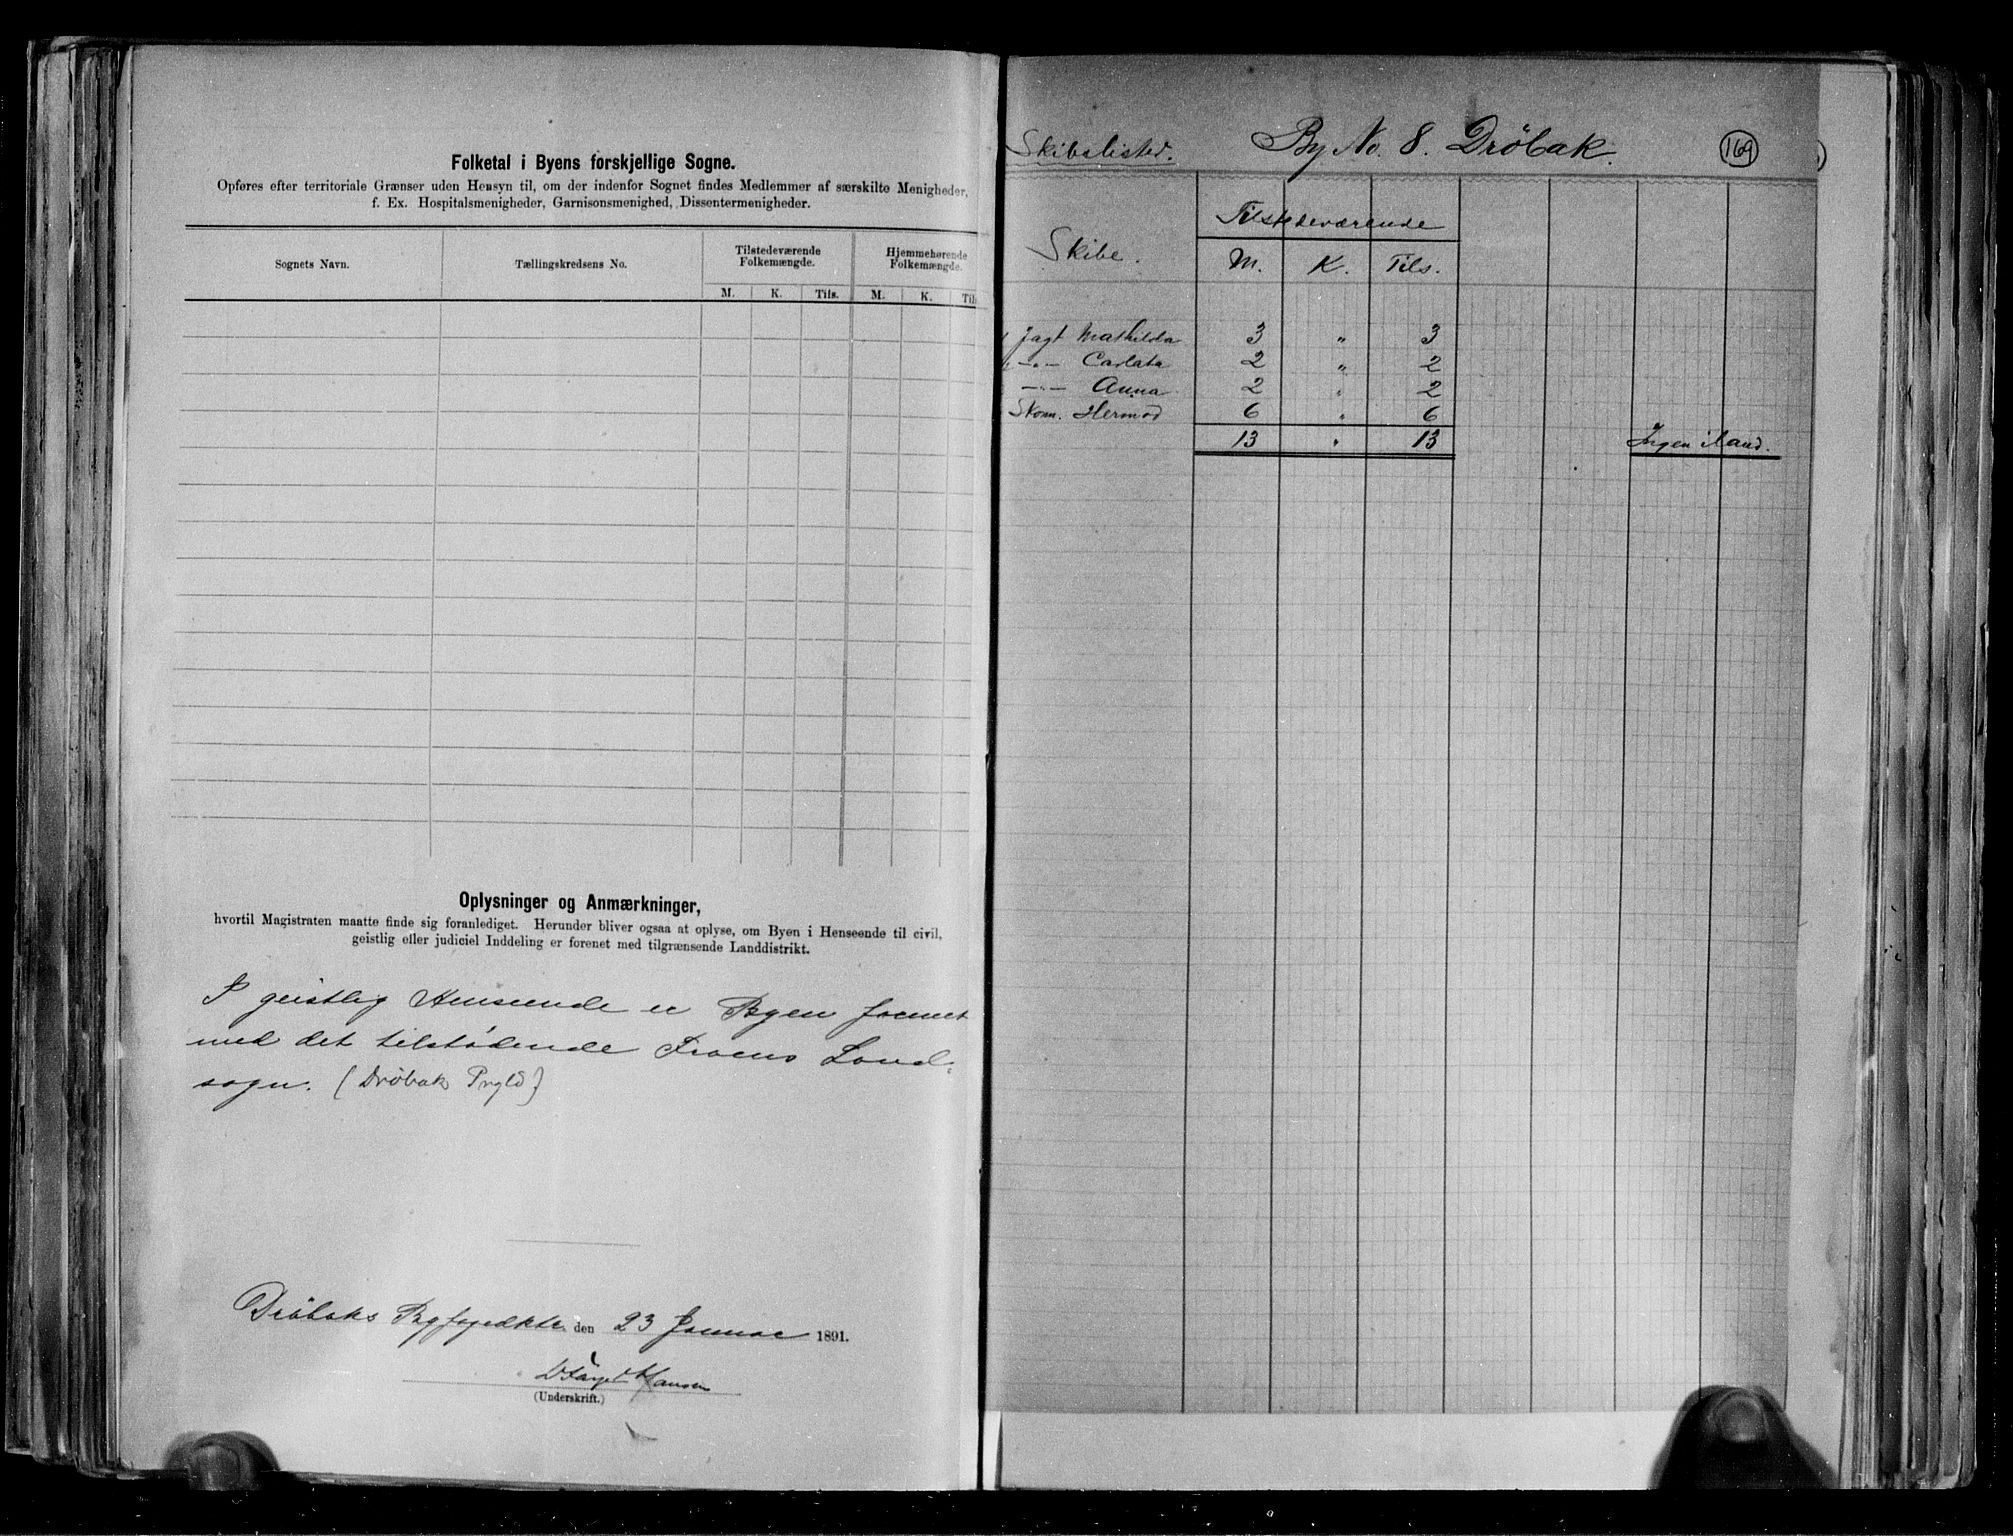 Folketal i Byens forskjellige Sogne.
Opføres efter territoriale Grænser uden Hensyn til, om der indenfor Sognet findes Medlemmer af særskilte Menigheder,
f. Ex. Hospitalsmenigheder, Garnisonsmenighed, Dissentermenigheder.
Sognets Navn. Tællingskredsens No. Tilstedeværende Hjemmehørende
Folkemængde. Folkemængde.
M. K. Tils. M. K. Tils
Oplysninger og Anmærkninger,
hvortil Magistraten maatte finde sig foranlediget. Herunder bliver ogsaa at oplyse, om Byen i Henseende til civil,
geistlig eller judiciel Inddeling er forenet med tilgrænsende Landdistrikt.
I geistlig Henseende er Byen forenet
med det tilstødende Froens Land-
sogn. (Drøbak Prgld)
Drøbaks Bygfogedkt. den 23 Januar 1891.
Hansen
(Underskrift.)
Skibslisted. By No. 8. Drøbak. 169
Tilstedeværende
Skibe. M. K. Tils.
Jagt Mathilda 3 " 3
—"— Carlata 2 " 2
—"— Anna 2 " 2
Skonn. Hermod 6 " 6
13 " 13 Ingen iland.